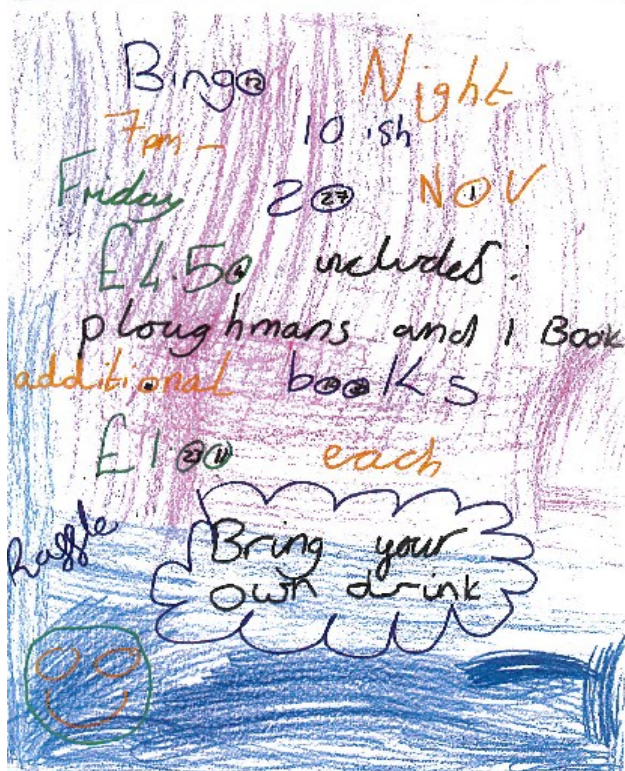 Bingo Night
7pm - 10 ish
Friday 20 NOV
£4.50 includes:
ploughmans and 1 Book
additional books
£1.00 each
Raffle
Bring your
own drink